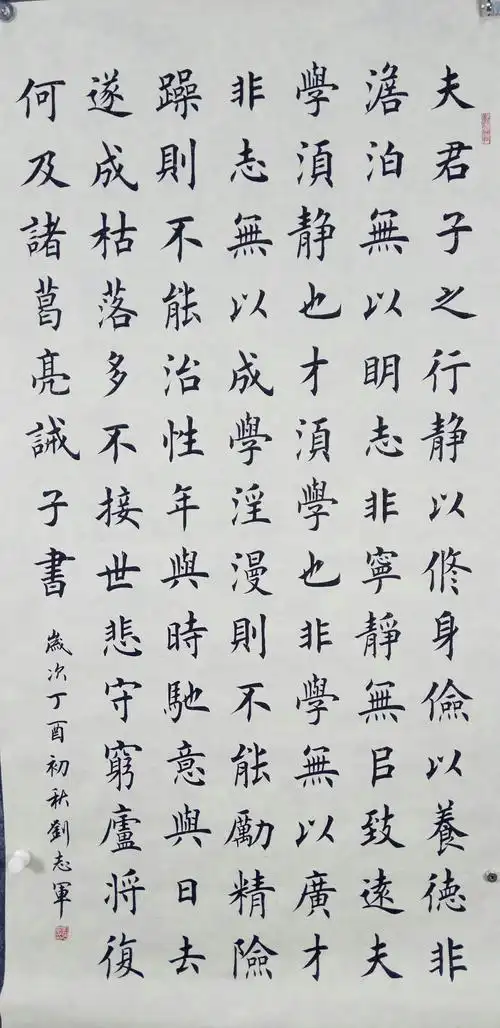 夫君子之行静以修身儉以養德非
澹泊無以明志非寧靜無㠯致遠夫
學須静也才須學也非學無以廣才
非志無以成學淫漫則不能勵精險
躁則不能治性年與時馳意與日去
遂成枯落多不接世悲守窮廬将復
何及諸葛亮誡子書
歲次丁酉初秋劉志軍